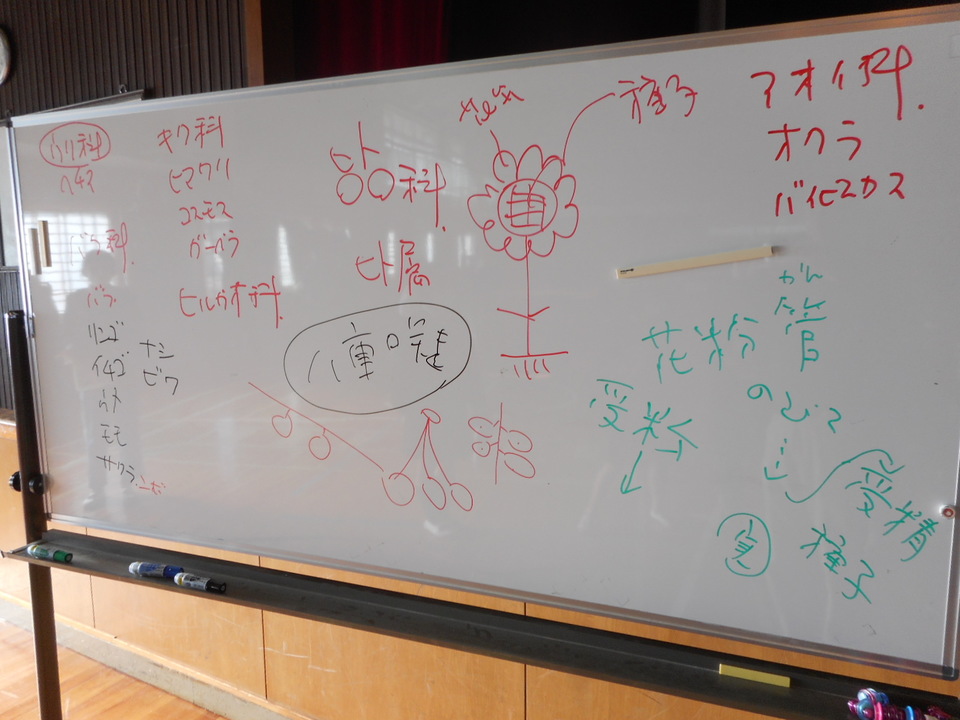 ウリ科
ヘチマ
バラ科
バラ
リンゴ
イチゴ
ウメ
モモ
サクラ
ナシ
ビワ
キク科
ヒマワリ
コスモス
ガーベラ
ヒルガオ科
ヒト
科
ヒト属
種子
アオイ科
オクラ
ハイビスカス
かん
花粉管
のびて
受粉
受精
実
種子